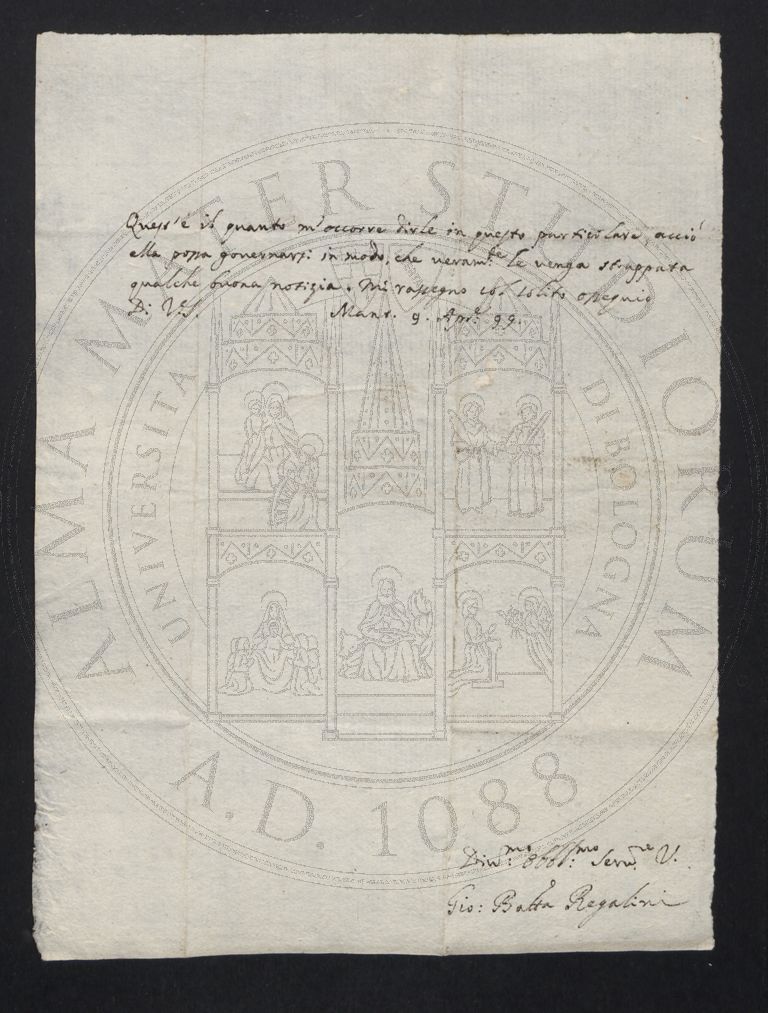 Quest'è il quanto m'occorre dirle in questo particolare, acciò
ella possa governarsi in modo, che veram.te le venga strappata
qualche buona notizia. Mi rassegno col solito ossequio
Di V.S. Mant. 9. Apr.e 99.
ALMA MATER STUDIORUM
UNIVERSITA DI BOLOGNA
A.D. 1088
Div.mo Obbl.mo Serv.re V.
Gio: Batta Regalini